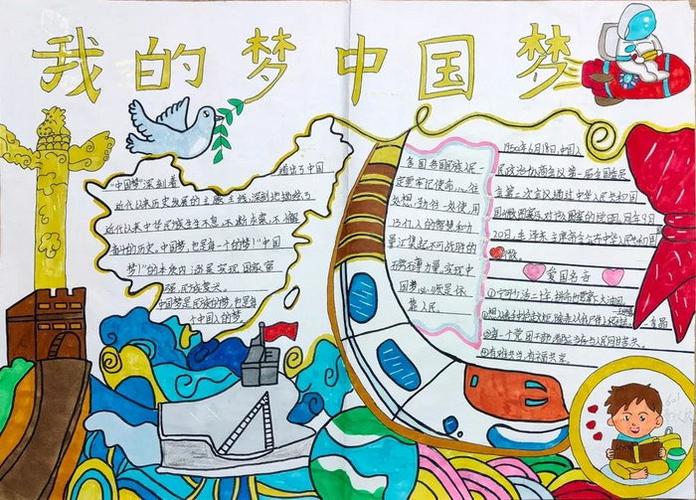 我的梦中国梦
"中国梦"深刻着 道出了中国
近代以来历史发展的主题主线,深刻地描绘了
近代以来中华民族生生不息,不断求索,不懈
奋斗的历史,中国梦,也是每一个的梦!"中国
梦"的本质内涵是实现国家富
强,民族复兴。
中国梦是民族的梦,也是每
个中国人的梦
全国各国民族人民一
定要牢记使命,心往
处想,劲往一处使,用
13亿人的智慧和力
量汇集起不可战胜的
磅礴力量,实现中
国梦
靠人民。
1950年6月18日,中国人
民政治协商会议第一届全国委员
会第二次会议通过中华人民共和国
国徽图案及对 图案的说明,同年9月
20日,毛泽东主席命令公布中华人民共和国
国徽。
爱国名言
①宁可少活二十年,拼命也要拿下大油田。